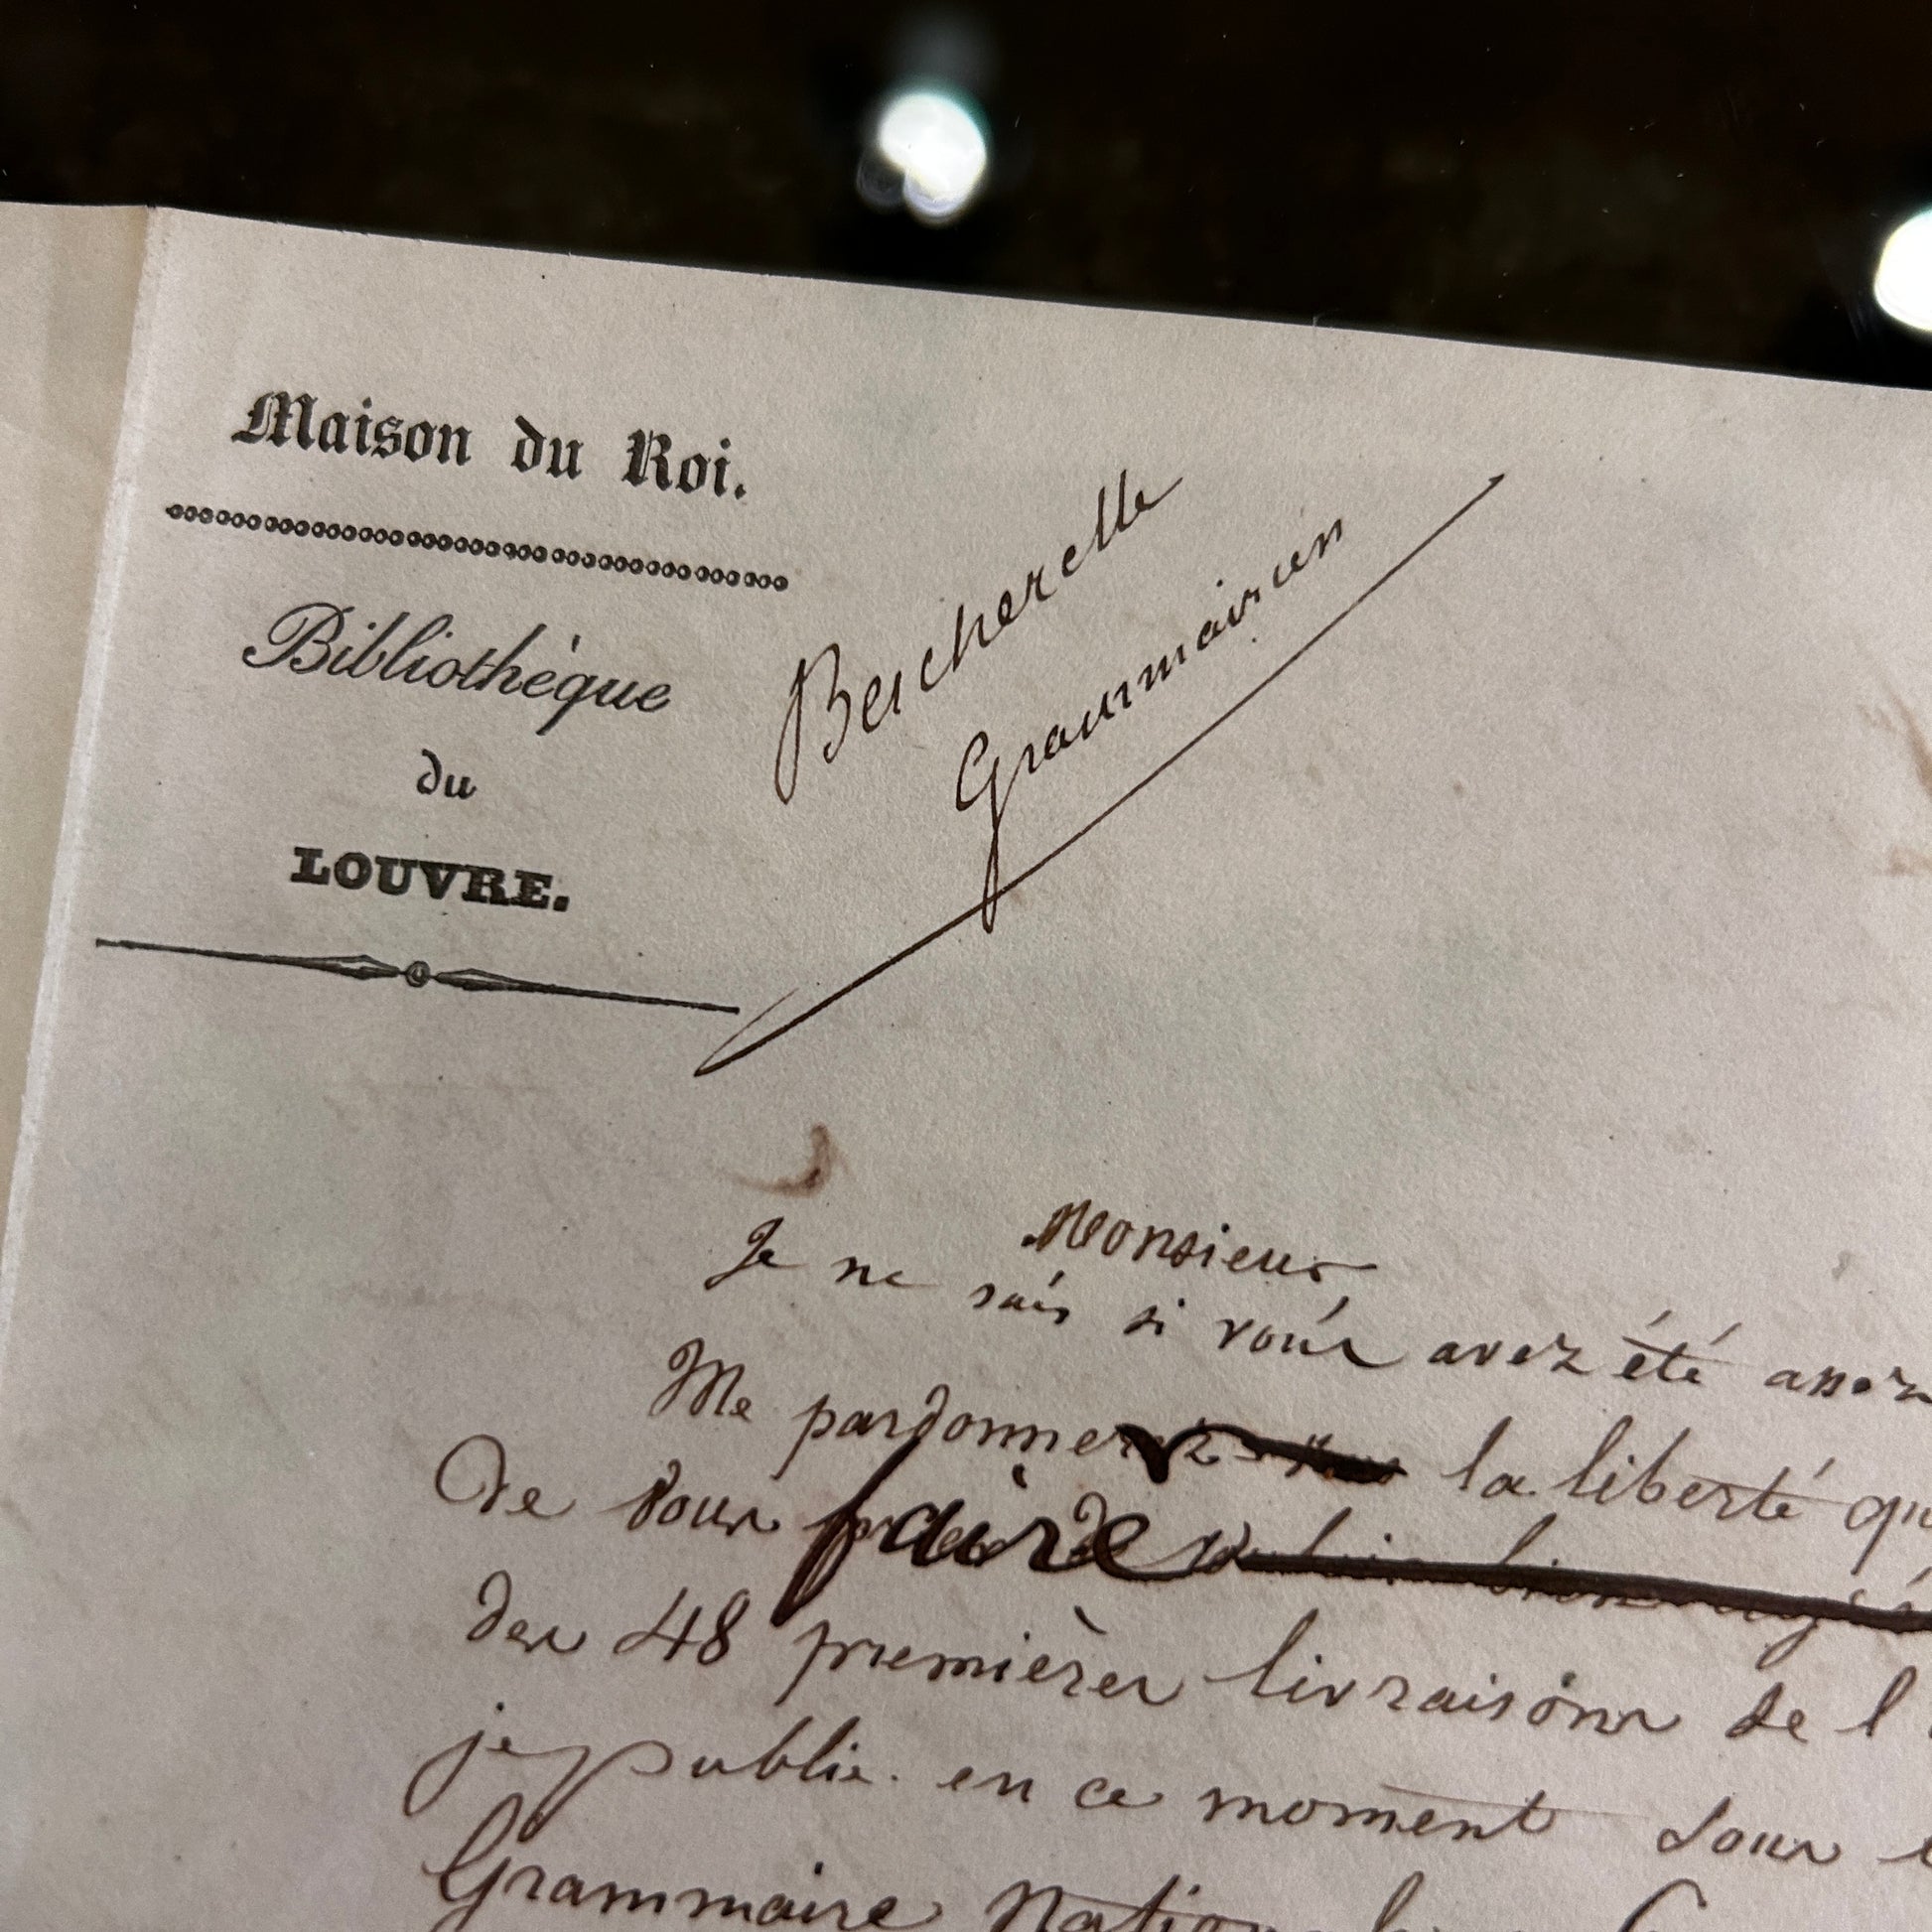 Maison du Roi.
Bibliothéque
du
LOUVRE.
Bescherelle
Grammairien
Monsieur
Je ne sais si vous avez été assez
Me pardonnerez la liberté
De vous faire
des 48 premières livraisons de l
je publie en ce moment sous
Grammaire Nationale